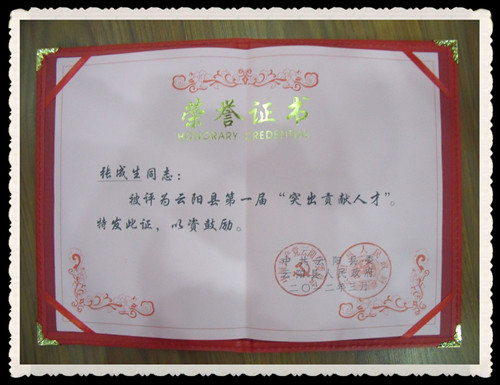 荣誉证书
HONORARY CREDENTIAL
张成生同志：
被评为云阳县第一届“突出贡献人才”。
特发此证，以资鼓励。
中共云阳县委
云阳县人民政府
二〇一二年三月